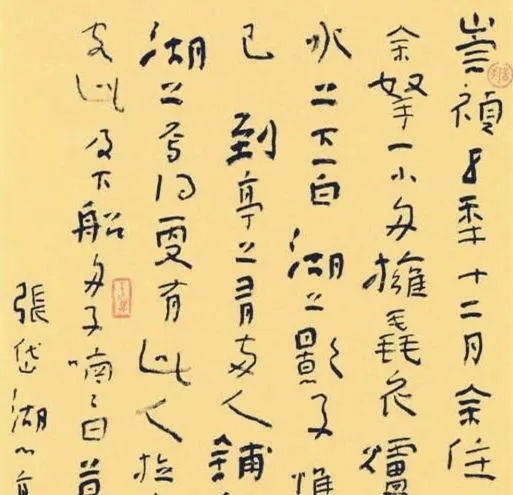 崇禎五秊十二月余住
余拏一小舟擁毳衣爐
水上下一白湖上影子惟
已到亭上有兩人鋪
湖上焉得更有此人拉
客此及下船舟子喃々曰莫
張岱湖心亭